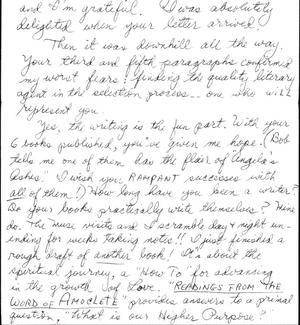 and I'm grateful. I was absolutely
delighted when your letter arrived.
Then it was downhill all the way.
Your third and fifth paragraphs confirmed
my worst fears: finding the quality literary
agent in the selection process -- one who will
represent you.
Yes, the writing is the fun part. With your
6 books published, you've given me hope. (Bob
tells me one of them has the flair of "Angela's
Ashes." I wish you RAMPANT successes with
all of them!) How long have you been a writer?
Do your books practically write themselves? Mine
do. The muse visits and I scramble day & night un-
ending for weeks taking notes!! I just finished a
rough draft of another book! It's about the
spiritual journey, a "How To" for advancing
in the growth of Love. "READINGS FROM THE
WORD OF AMOCLETE" provides answers to a primal
question, "What is our Higher Purpose?"